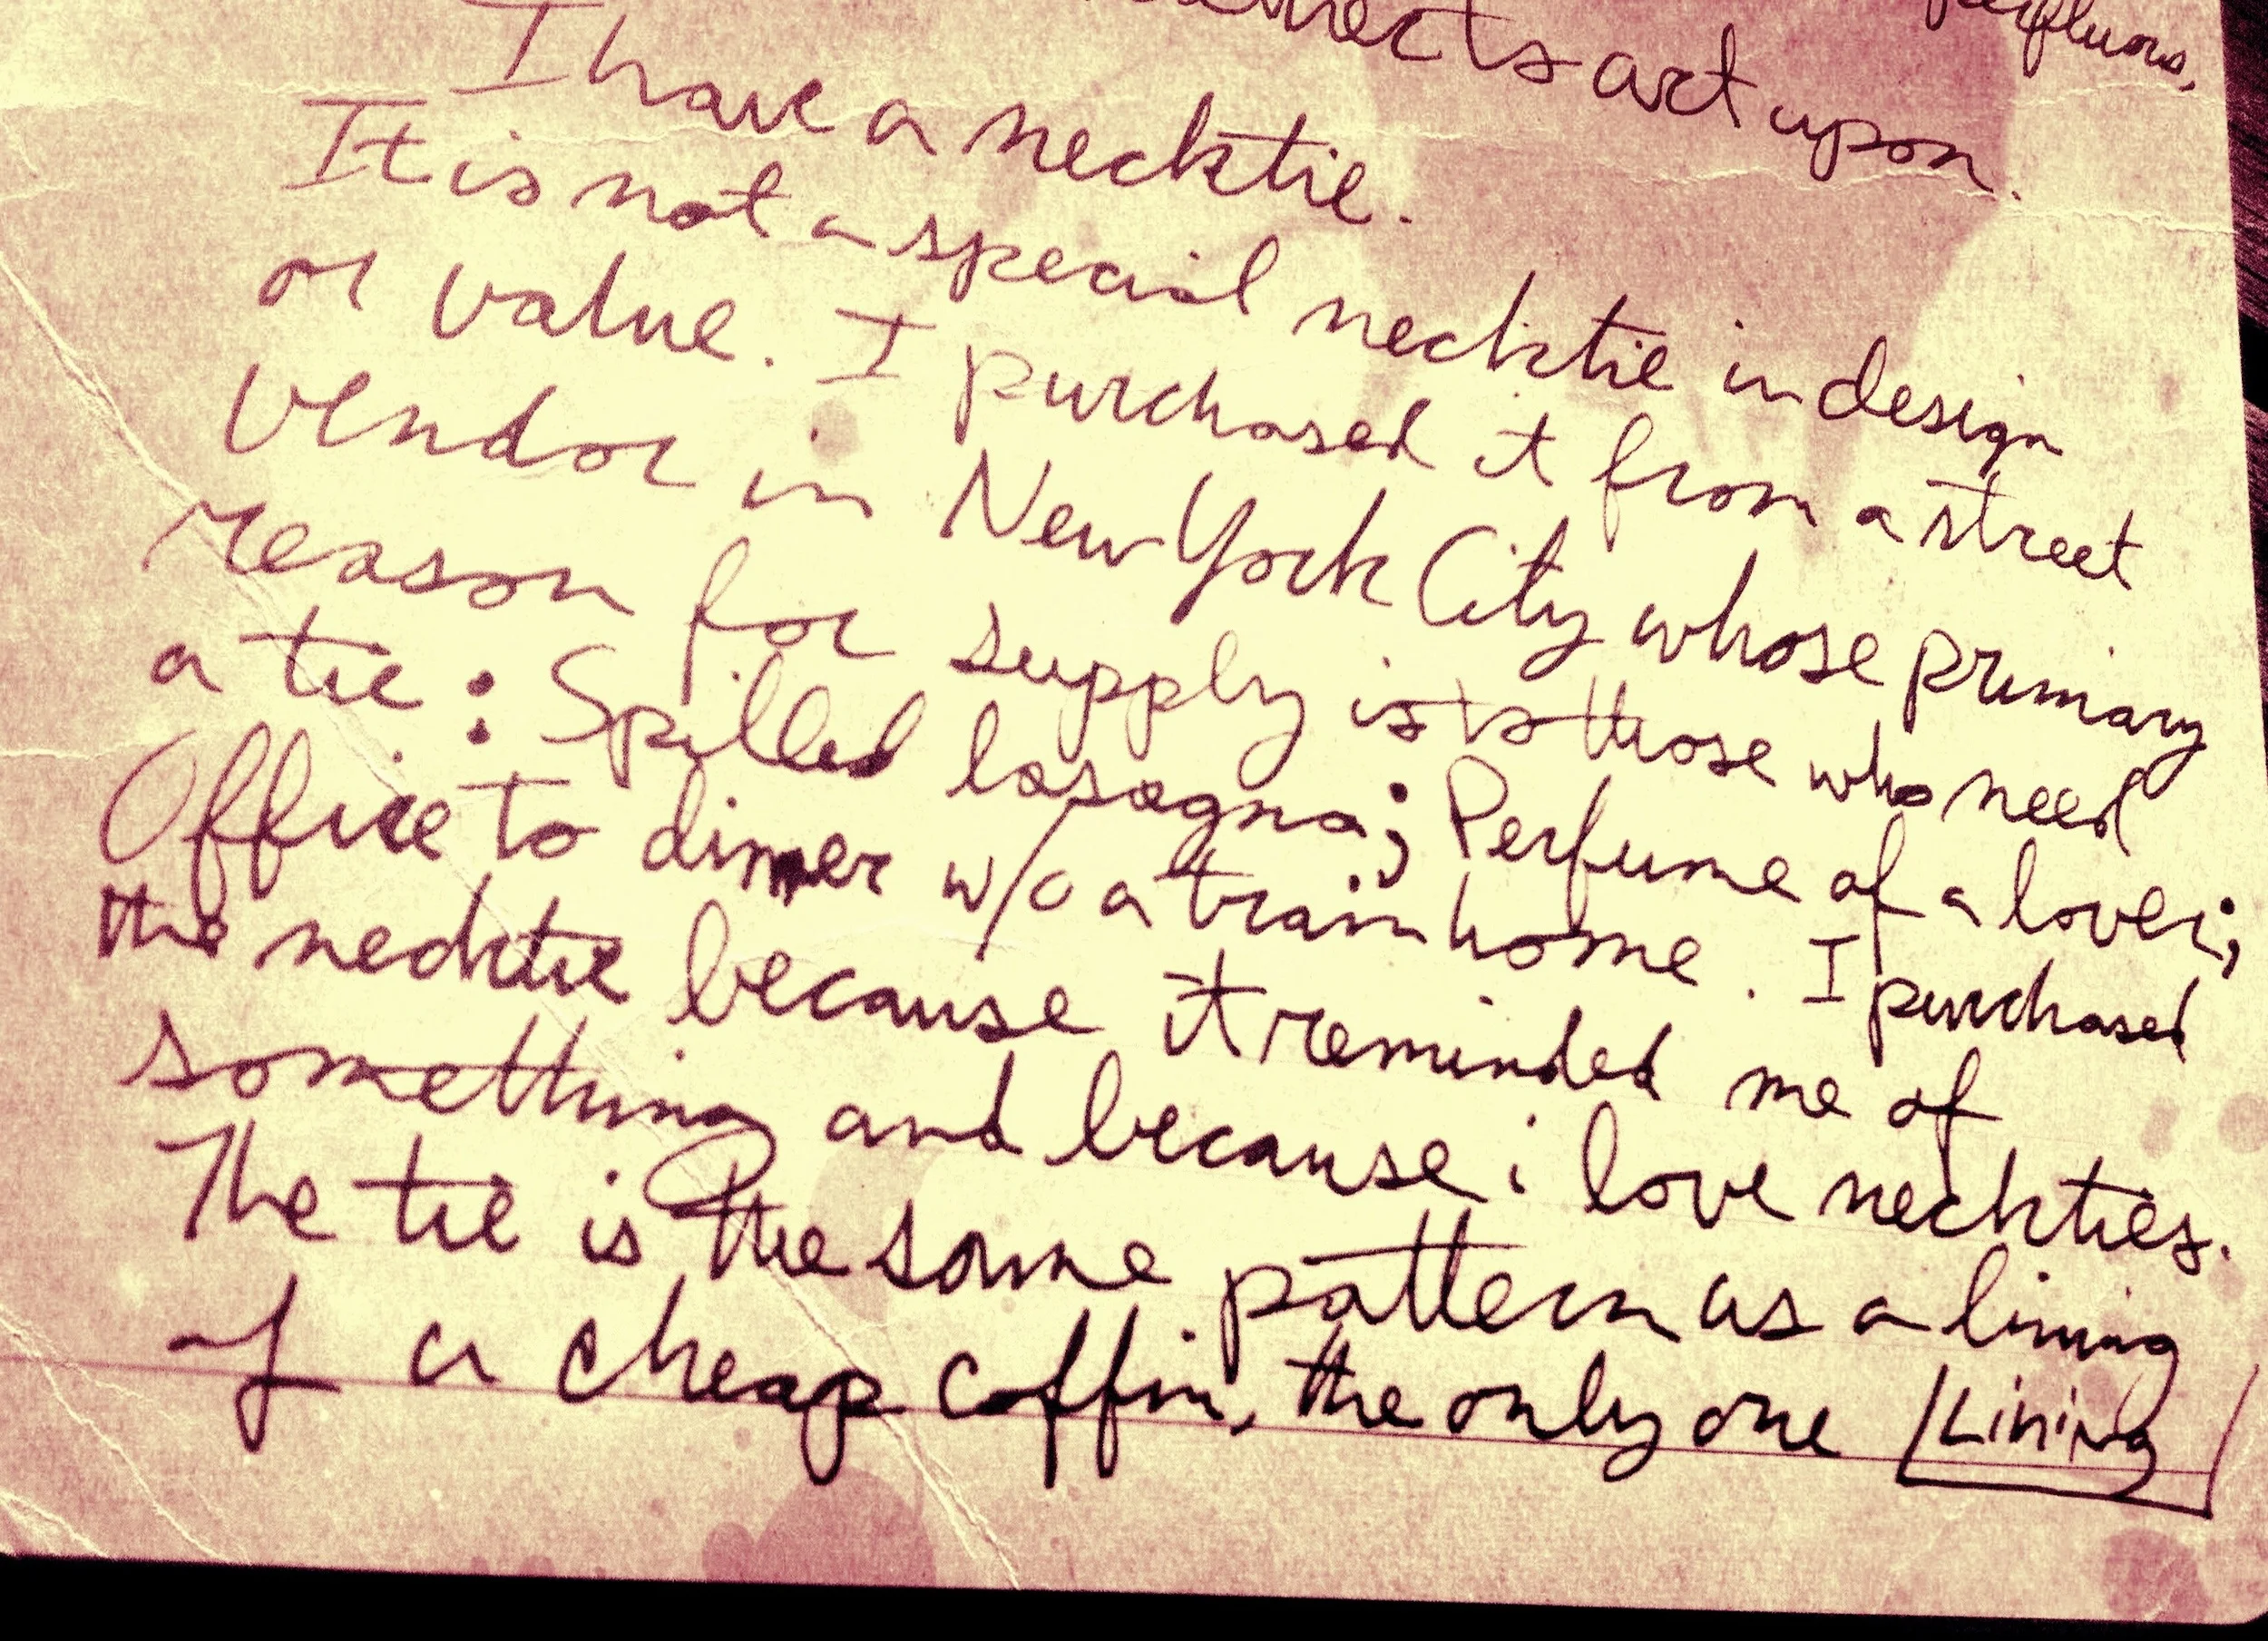 act upon.
I have a necktie.
It is not a special necktie in design
or value. I purchased it from a street
vendor in New York City whose primary
reason for supply is to those who need
a tie: Spilled lasagna; Perfume of a lover;
Office to dinner w/o a train home. I purchased
the necktie because it reminded me of
something and because i love neckties.
The tie is the same pattern as a lining
of a cheap coffin, the only one [Lining]